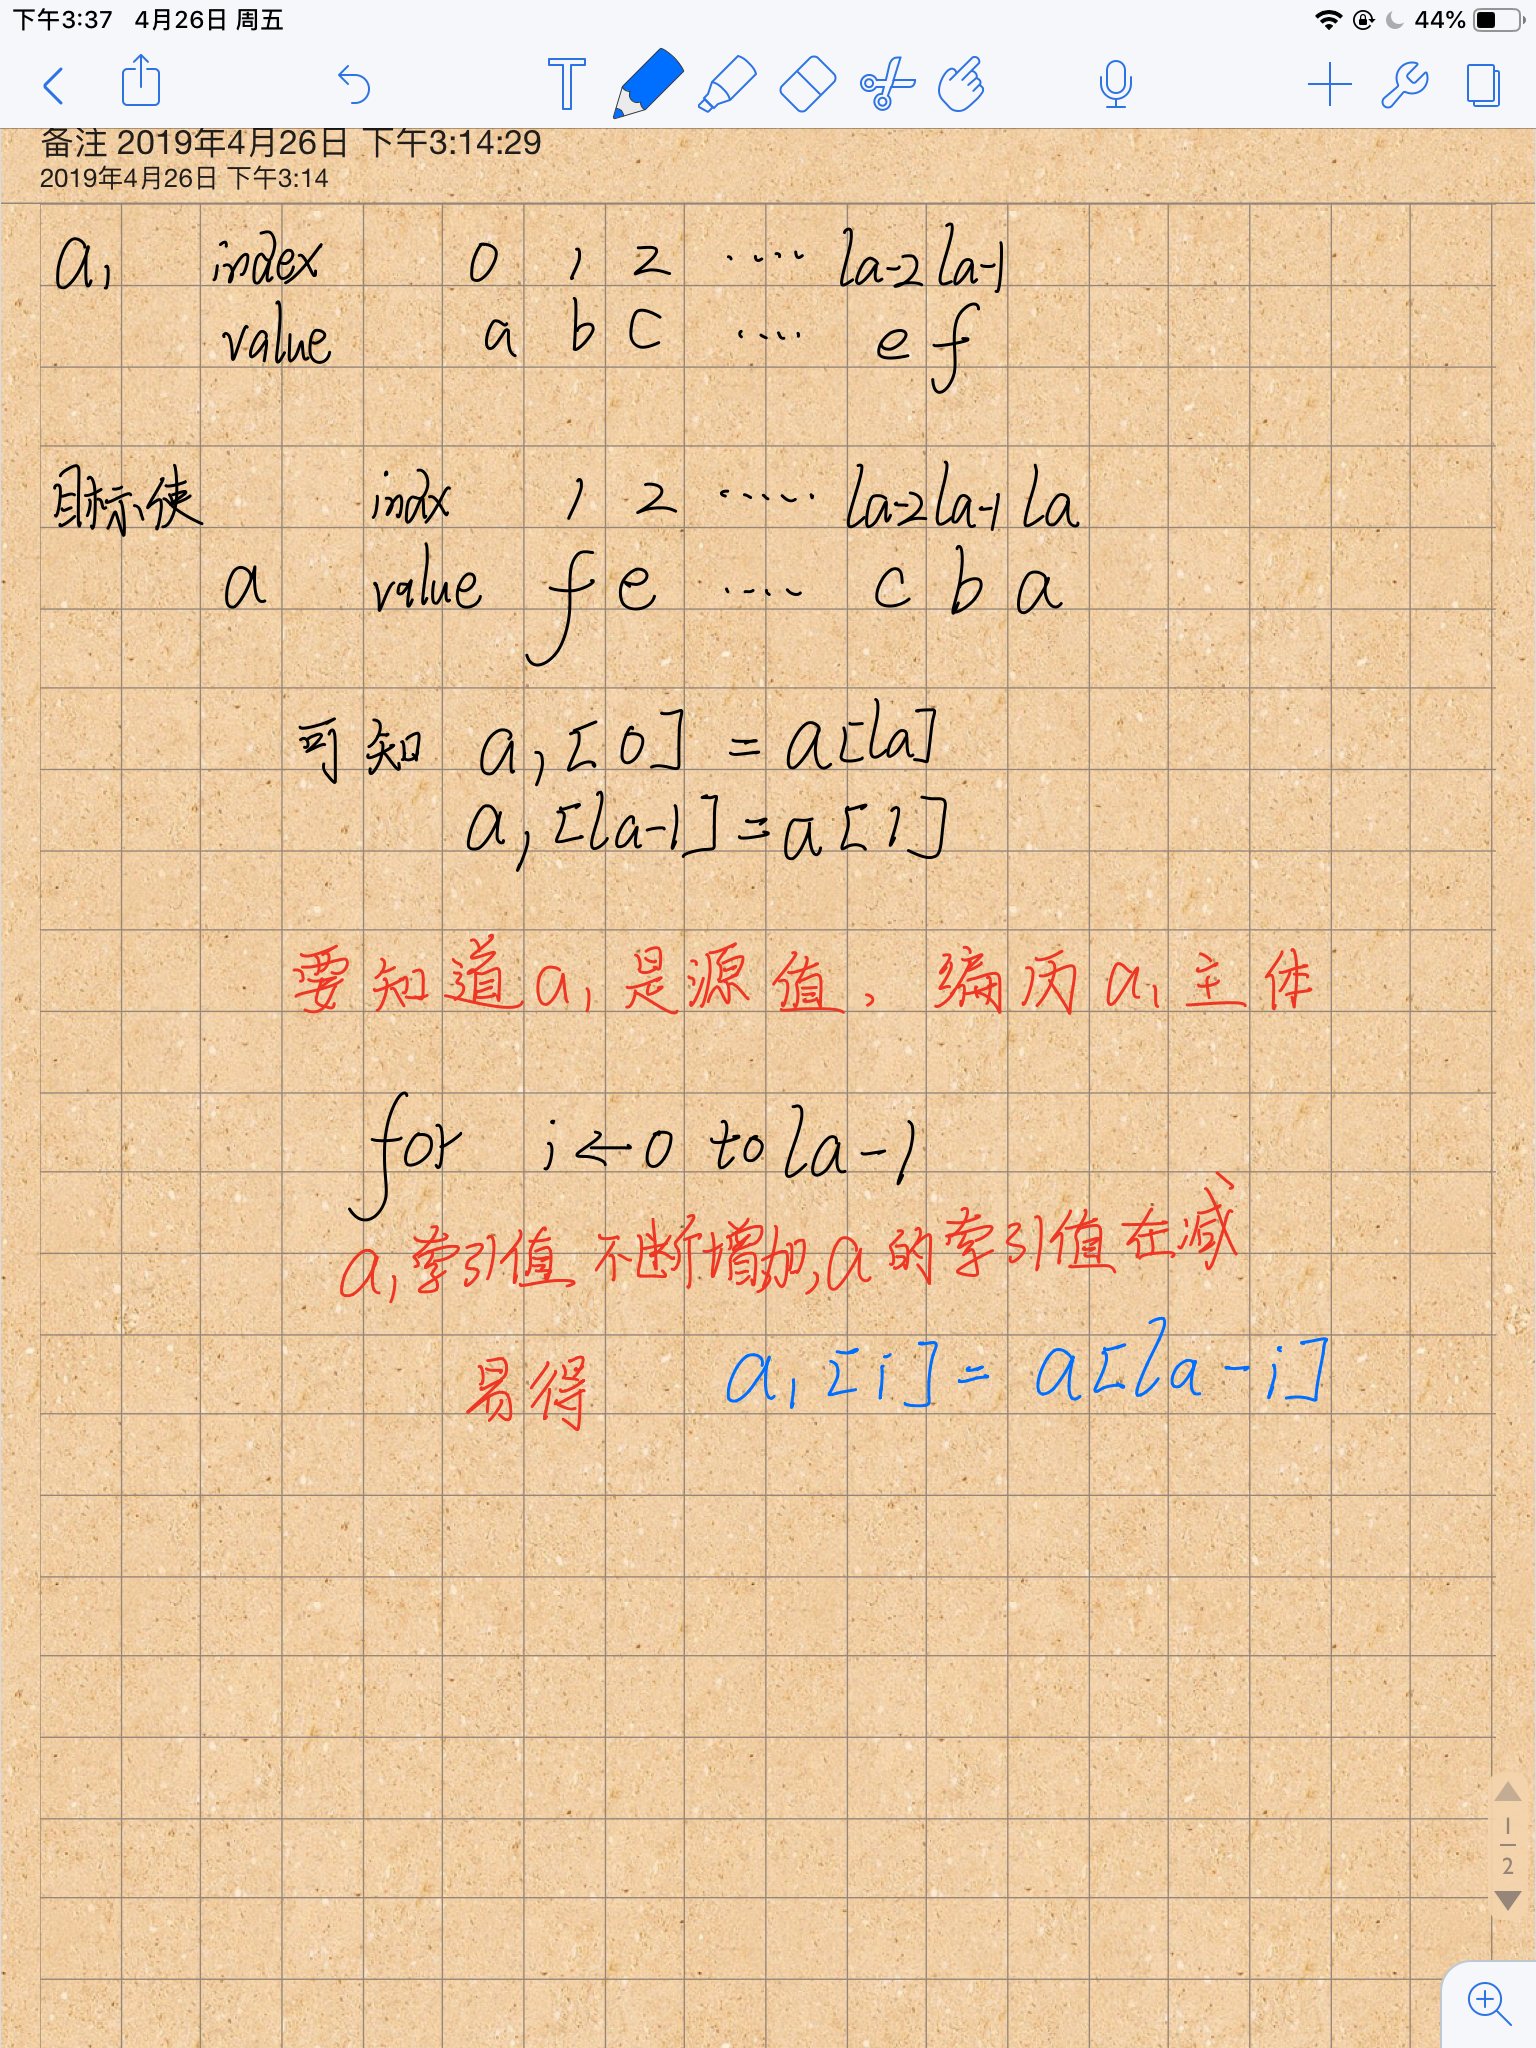 下午3:37 4月26日 周五 44%
备注 2019年4月26日 下午3:14:29
2019年4月26日 下午3:14
a1 index 0 1 2 ···· la-2 la-1
value a b c ···· e f
目标:使 indx 1 2 ····· la-2 la-1 la
a value f e ···· c b a
可知 a1[0] = a[la]
a1[la-1] = a[1]
要知道a1是源值,编历a1主体
for i ← 0 to la-1
a1索引值不断增加,a的索引值在减
易得 a1[i] = a[la-i]
1
2